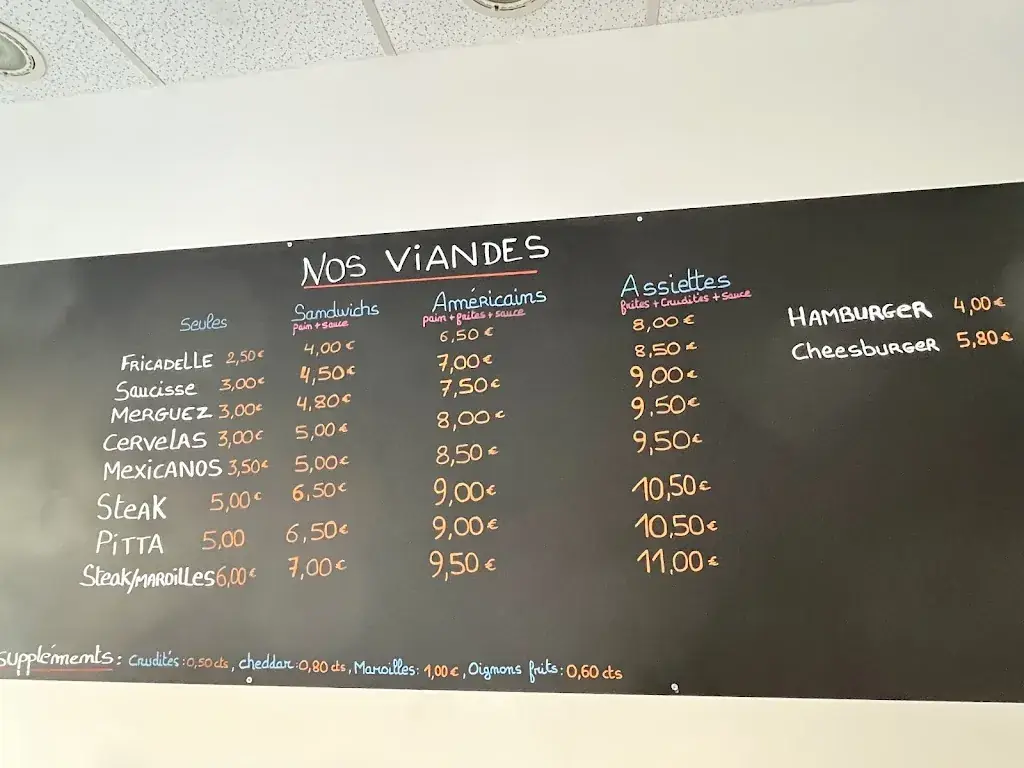 NOS ViANDES
Seules Sandwichs Américains Assiettes
pain + sauce pain + frites + sauce frites + Crudités + sauce
FRiCADELLE 2,50€ 4,00€ 6,50€ 8,00€
Saucisse 3,00€ 4,50€ 7,00€ 8,50€
MERGUEZ 3,00€ 4,80€ 7,50€ 9,00€
CERVELAS 3,00€ 5,00€ 8,00€ 9,50€
MEXiCANOS 3,50€ 5,00€ 8,50€ 9,50€
STEAK 5,00€ 6,50€ 9,00€ 10,50€
PiTTA 5,00 6,50€ 9,00€ 10,50€
Steak/MAROILLES 6,00€ 7,00€ 9,50€ 11,00€
HAMBURGER 4,00€
CheesBURGER 5,80€
Suppléments : Crudités : 0,50 cts, cheddar : 0,80 cts, Maroilles : 1,00€, Oignons frits : 0,60 cts